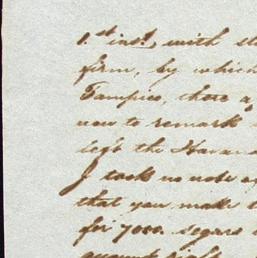 1.st inst., with st
firm, by which
Tampico, there a
now to remark
left the Havan
I took no note o
that you make t
for 7000. segars